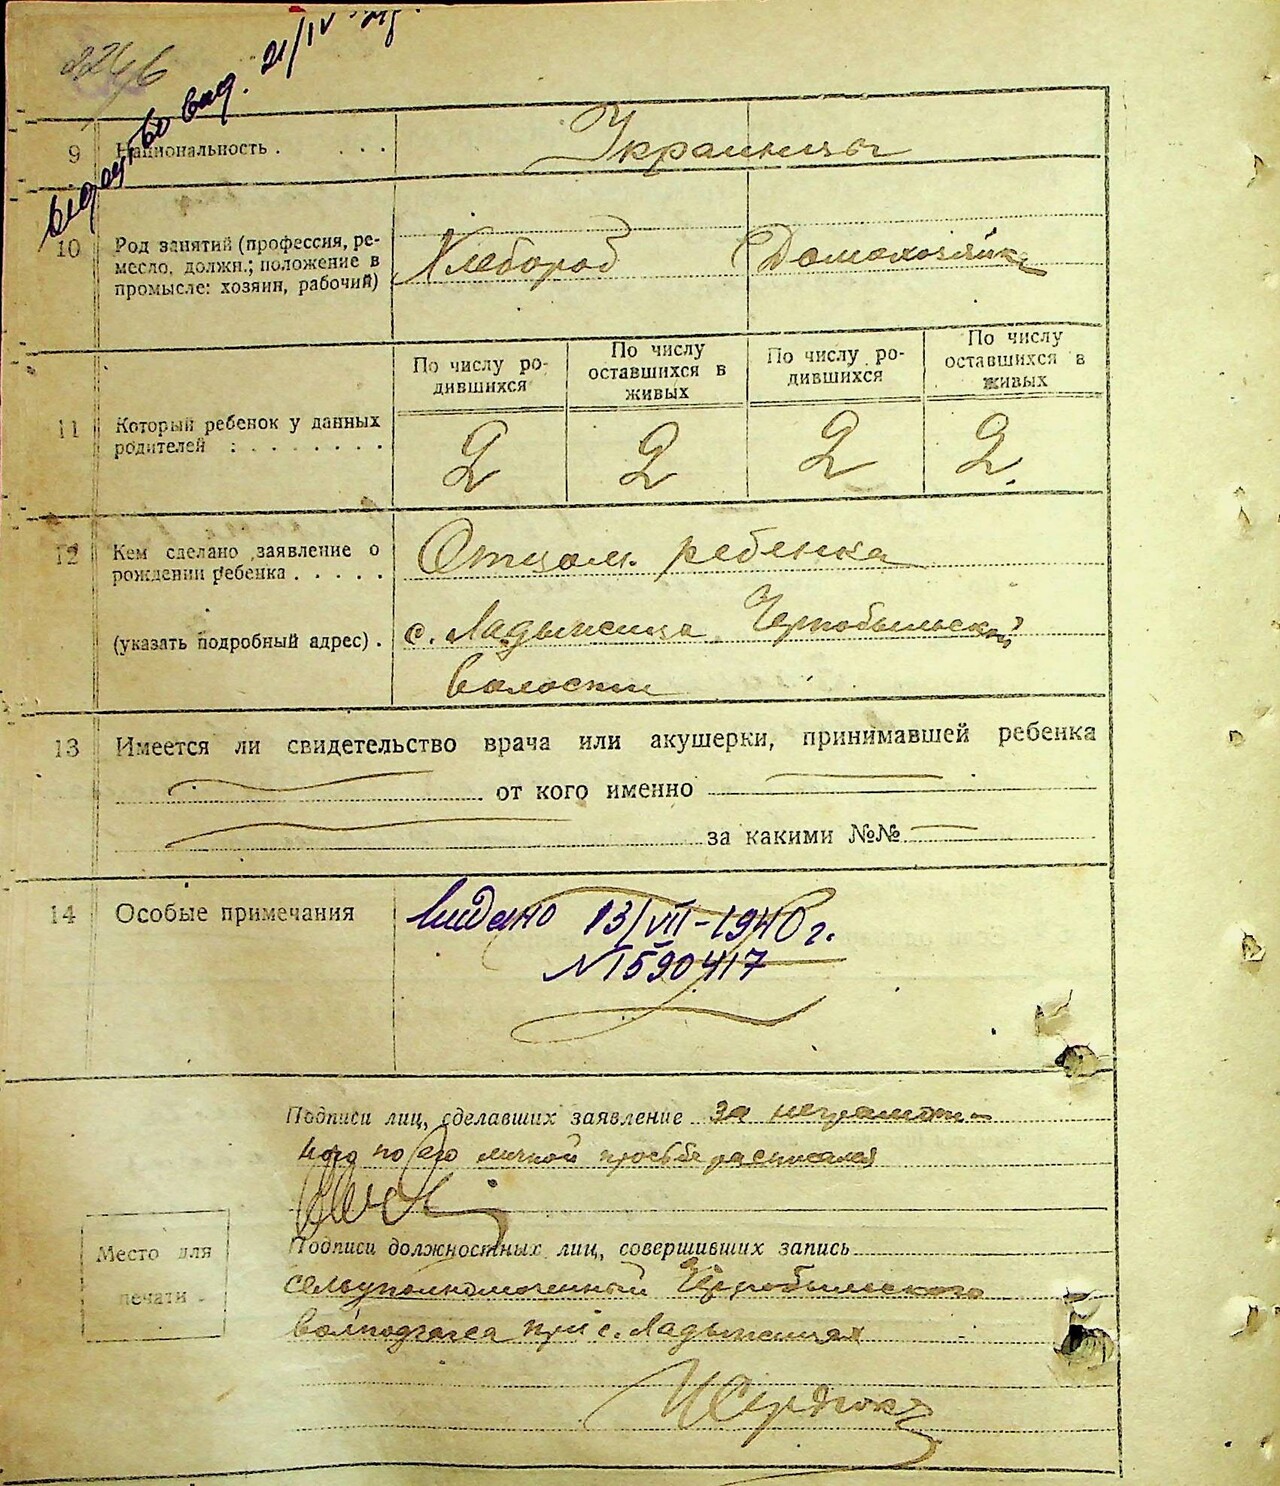 2246
21/IV
9 Национальность . . . . Украинцы
10 Род занятий (профессия, ре-
месло, должн.; положение в
промысле: хозяин, рабочий)
Хлебороб Домохозяйка
По числу ро-
дившихся
По числу
оставшихся в
живых
По числу ро-
дившихся
По числу
оставшихся в
живых
11 Который ребенок у данных
родителей : . . . . . . . .
2 2 2 2.
12 Кем сделано заявление о
рождении ребенка . . . . .
Отцом ребенка
(указать подробный адрес) . с. Ладыжица Чернобыльской
волости
13 Имеется ли свидетельство врача или акушерки, принимавшей ребенка
от кого именно
за какими №№
14 Особые примечания
Видано 13/VII-1940 г.
N1590417
Подписи лиц, сделавших заявление за неграмот-
ного по его личной просьбе расписался
Подписи должностных лиц, совершивших запись
сельуполномоченный Чернобыльского
волподзагса при с. Ладыжицах
Место для
печати
ИСердюк